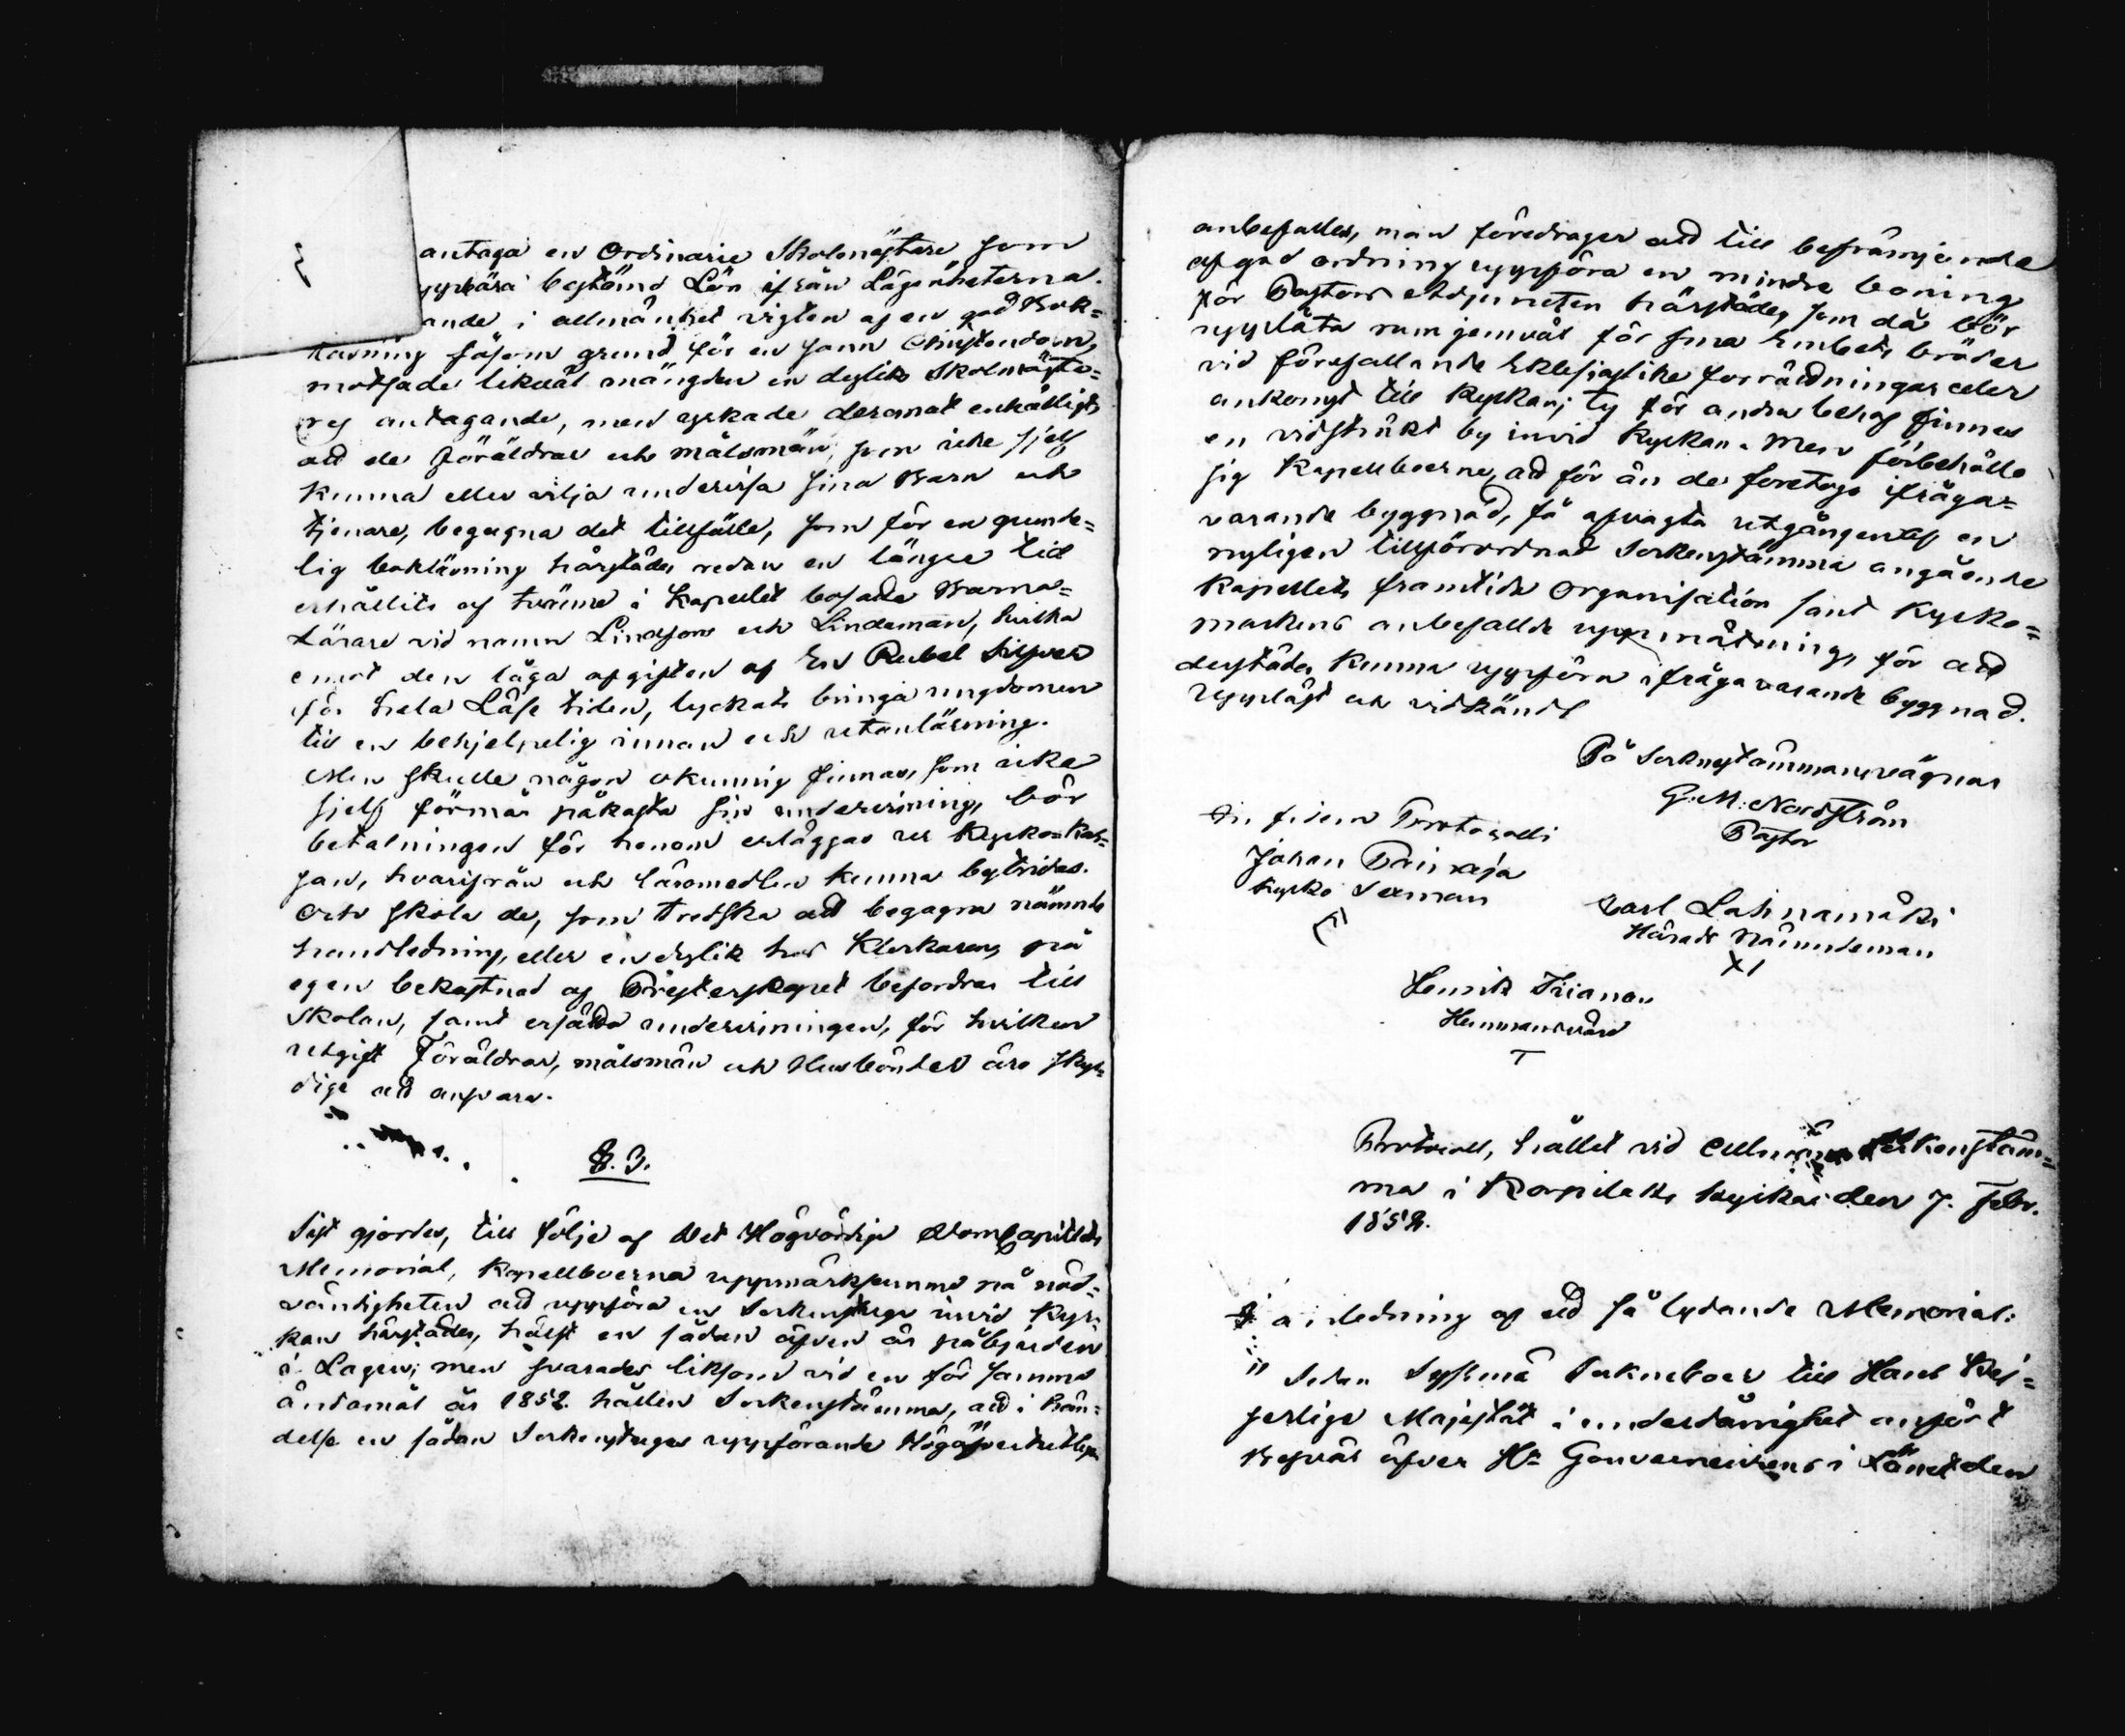 antaga en Ordinarie Skolmästare som
uppbära bestämd Lön ifrån Lägenheterna.
ande i allmänhet vigten af en god Bok=
stafning såsom grund för en sann Christendom,
motsade likväl mängden en dylik Skolmästa=
res antagande, men yrkade deremot enhälligt
att de Föräldrar och målsmän, som icke sjelf
kunna eller vilja undervisa sina Barn och
tjenare, begagna det tillfälle, som för en grunde=
lig boklärning härstädes redan en längre tid
erhållits af tvänne i Kapellet bosatta Barna=
lärare vid namn Lindfors och Lindeman, hvilka
emot den låga afgiften af En Rubel Silfver
för hela Läse tiden, lyckats bringa ungdomen
till en behjelpelig innan och utanläsning.
Men skulle någon okunnig finnas, som icke
sjelf förmår påkosta sin undervisning, bör
betalningen för honom erläggas ur Kyrko Kas=
san, hvarifrån och läromedlen kunna bestridas.
Och skola de, som tredska att begagna nämnde
handledning, eller en dylik hos Klockaren, på
egen bekostnad af Presterskapet befordras till
Skolan, samt ersätta undervisningen, för hvilken
utgift Föräldrar, målsmän och Husbönder äro skyl=
dige att ansvara.
§. 3.
Sist gjordes, till följe af Det Högvördiga DomCapitlets
Memorial, Kapellboerna uppmärksamme på nöd=
vändigheten att uppföra en Sockenstuga invid Kyr=
kan härstädes, hälst en sådan äfven är påbjuden
i Lagen; men svarades liksom vid en för samma
ändamål år 1852 hållen Sockenstämma, att i hän=
delse en sådan Sockenstugas uppförande
anbefalles, man föredrager att till befrämjande
af god ordning uppföra en mindre boning
för Pastors Adjuncten härstädes, som då bör
upplåta rum jemväl för sina Embets bröder
vid förefallande Eklesiastike förrättningar eller
ankomst till Kyrkan; ty för andra behof finnes
en vidsträkt by invid Kyrkan. Men förbehålla
sig Kapellboerne, att för än de företaga ifråga=
varande byggnad, få afvagta utgången af en
nyligen tillförordnad Sockenstämma angående
Kapellets framtida Organisation samt Kyrko=
markens anbefallde uppmätning, för att
derstädes kunna uppföra ifrågavarande byggnad.
Uppläst och vidkändt
På Sockenstämmans vägnar
G: M: Nordström
Pastor
In fidem Protocolli
Johan Prinaja
Kyrko Sexman
Carl Lahnamäki
Härads Nämndeman
Henrik
Hemmansvärd
Protocoll, hållet vid Allmän Sockenstäm=
ma i Kapilaks kyrka den 7. Febr.
1852.
I anledning af ett så lydande Memorial:
" Sedan Sysmä Socknboer till Hans Kej=
serlige Majestät i underdånighet anfört
Besvär öfver Hr Gouverneurens i Länet den